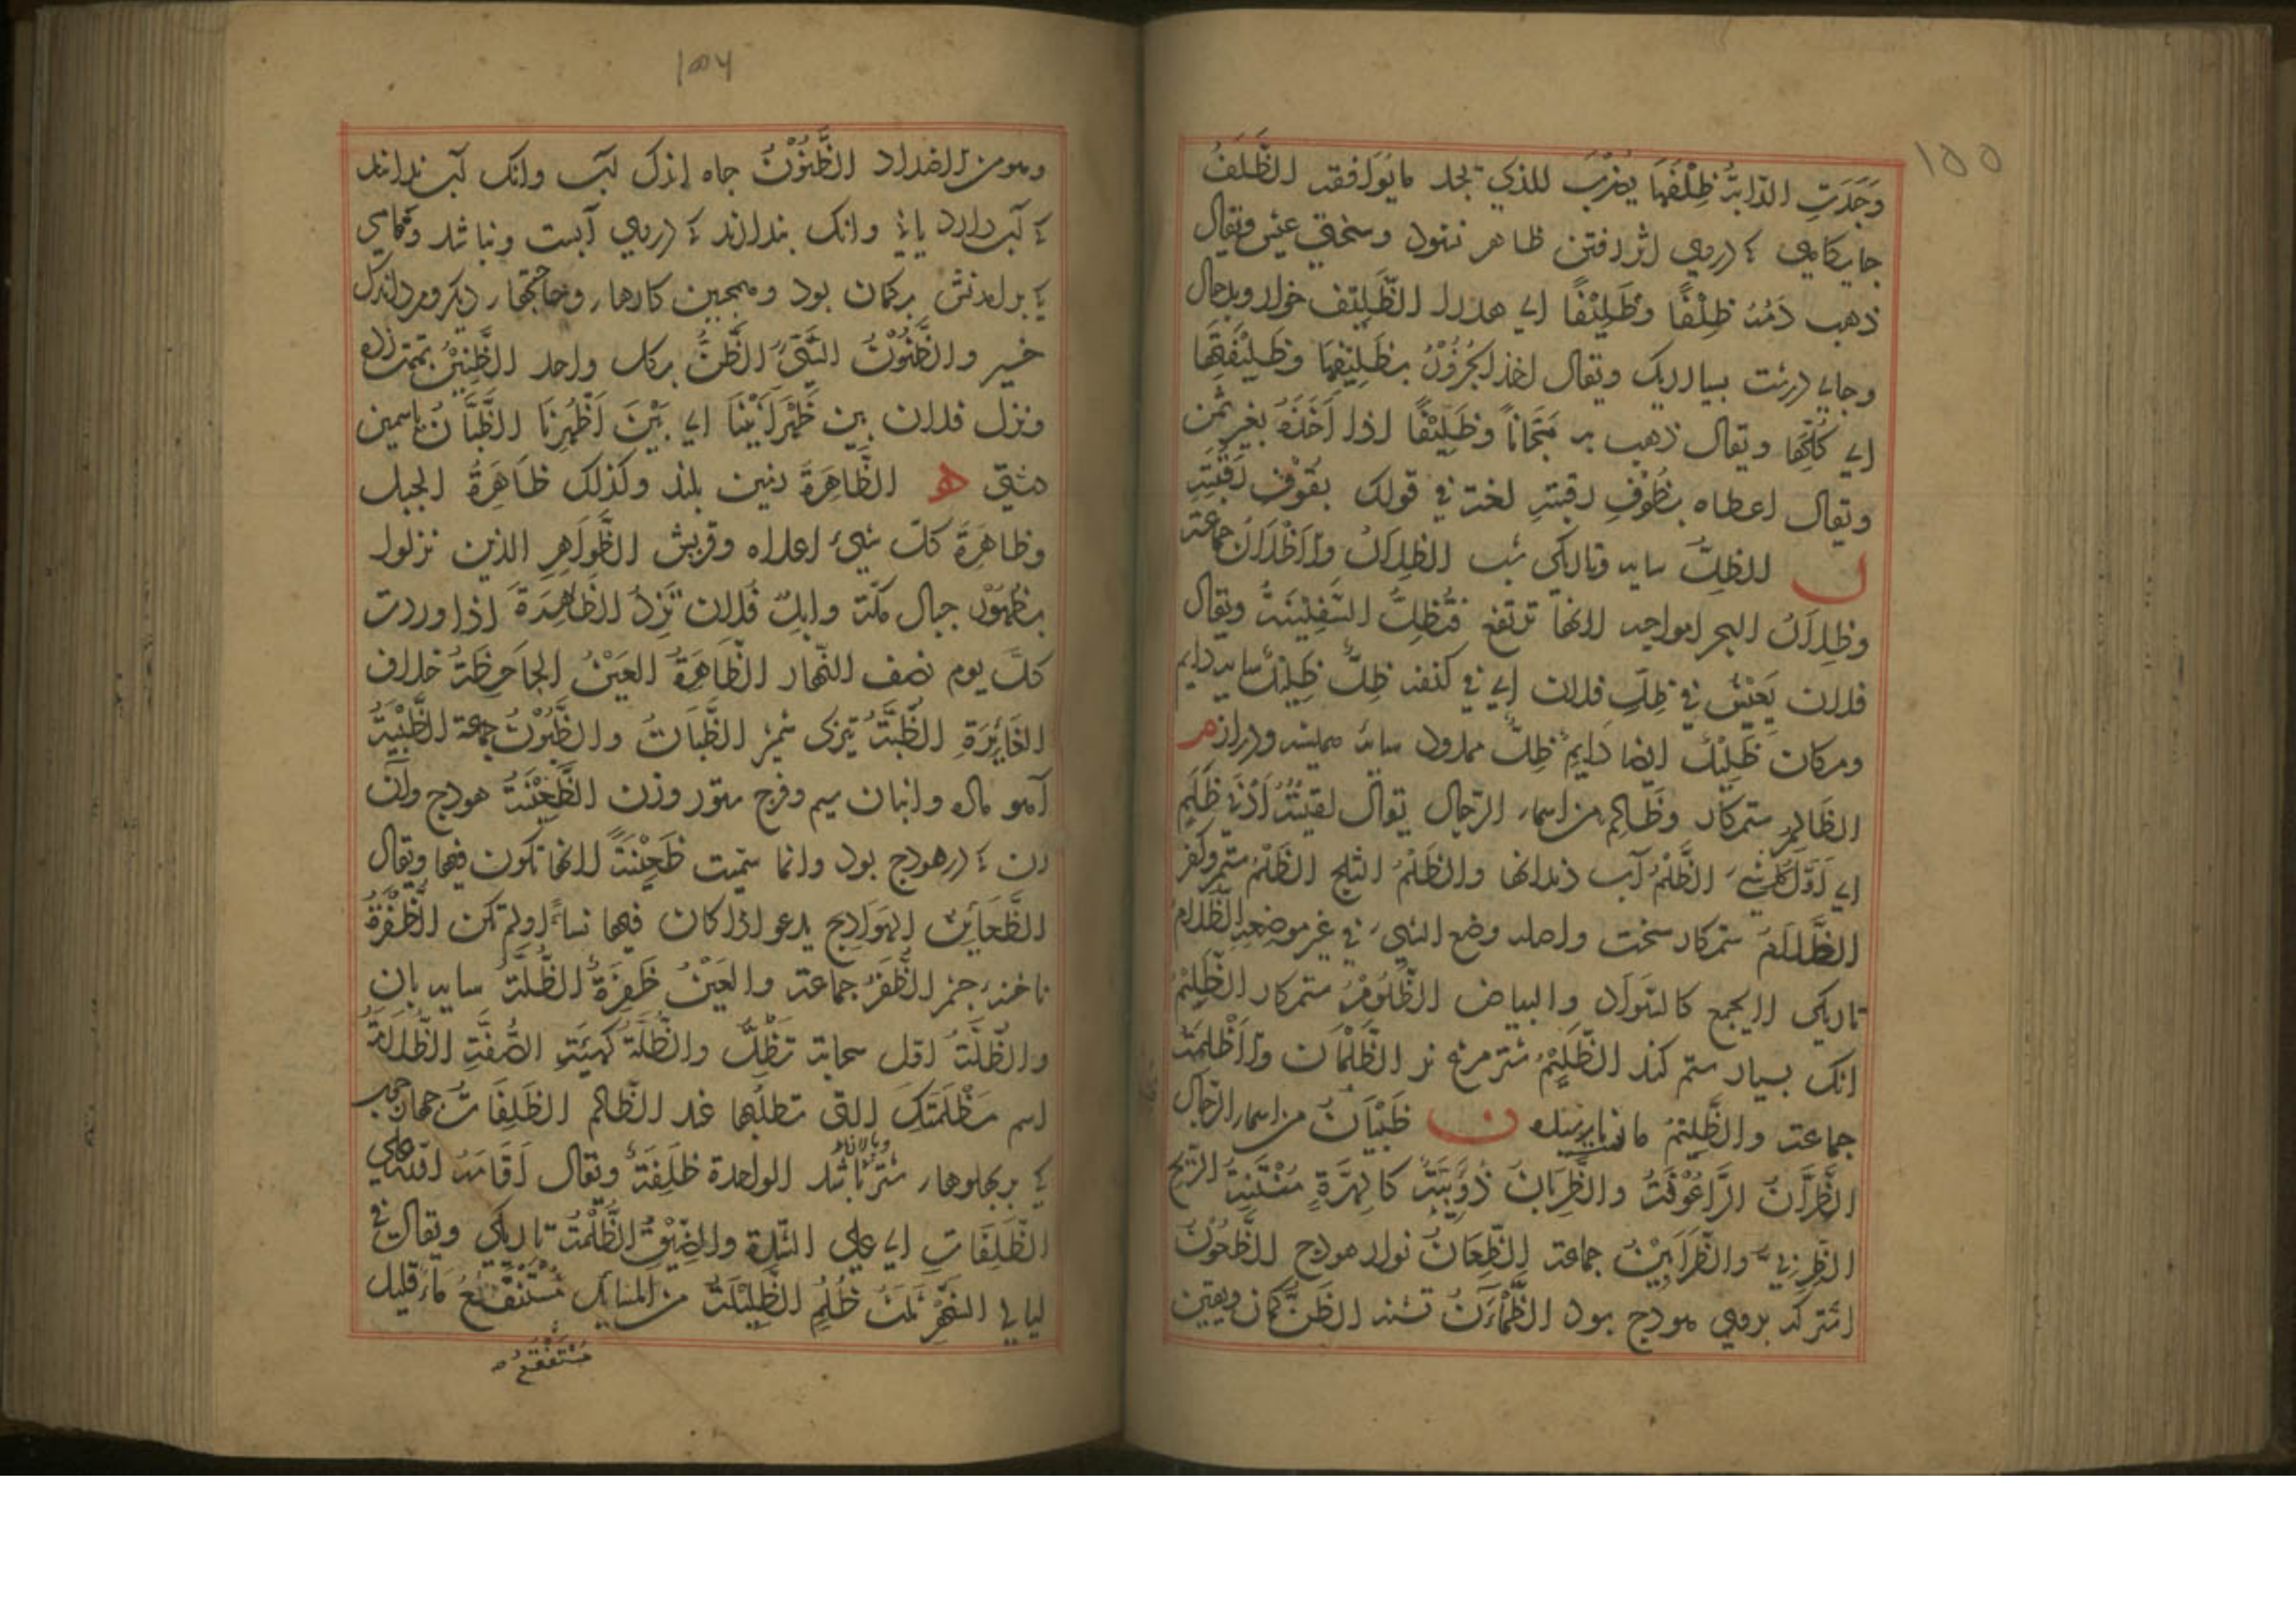 ١٥٥
وَجَدَتِ الدّابَّةُ ظِلْفَهَا يضْرَبُ للذي تجد ما يُوَافقه الظَّلَفُ
جايكاهي كه درمي اثر رفتن ظاهر نشود وسختي عيش ويقال
ذهب دَمُهُ ظِلْفًا وظَلِيْفًا اي هدرا الظَّلِيْف خوار وبدحال
وجاي درشت بسيار ريك ويقال اخذ الجُزُوْرَ بظَلِيْفِهَا وظَلِيْفَتِهَا
اي كُلَّهَا ويقال ذهب به مَجَّانًا وظَلِيْفًا اذا اَخَذَهُ بغير ثمن
ويقال اعطاه بظُوْفِ رقبتهِ لغة في قولك بقُوْفِ رَقَبَتِهِ
ل الظِلُّ سايه وتاريكي شب الظِلالُ والاَظْلالُ جماعة
وظِلالُ البحر امواجه لانها ترتفع فتُظِلُّ السَّفِيْنَةَ ويقال
فلان يَعِيْشُ في ظِلِّ فلان اي في كنفه ظِلٌّ ظَلِيْلٌ سايه دايم
ومكان ظَلِيْلٌ ايضا دَايمٌ ظِلٌّ ممدود سايه هميشه ودراز م
الظَالِمُ ستمكار وظَالِم من اسماء الرّجال يقال لقيتُهُ اَدْنَى ظَلَمٍ
اي اَوَّلَ كل شيء الظَّلْمُ آب دندانها والظَلْمُ الثلج الظُلْمُ ستم وكفر
الظَّلَّامُ ستمكار سخت واصله وضع الشيء في غير موضعه الظَّلامُ
تاريكي لا يجمع كالسَّوَاد والبياض الظَّلُوْمُ ستمكار الظِّلِّيْمُ
انك بسيار ستم كند الظَّلِيْمُ شتر مرغ نر الظُّلْمَان والاَظْلِمَةُ
جماعة والظَّلِيْمُ ن ظَبْيَانُ من اسماء الرّجال
الظُرَّانُ الرَّاعُوْفَةُ والظَّرِبَانُ دُوَيْبَّةٌ كالهِرَّةِ مُنْتِنَةُ الرّيح
الظِرْبَى والظَّرَابِيْنُ جماعة الظِّعَانُ نوار هودج الظَّعُوْنُ
اشتر كه بروي هودج بود الظَّمْآنُ تشنه الظَنُّ كمان ويقين
١٥٦
وهو من الاضداد الظَّنُوْنُ جاه اندك آب وانك آب نداند
كه آب دارد يا نه وانك بندارند كه درمي آبست ونباشد
كه بر آمدنش بركمان بود وهمجنين كارها وحاجتها ديكر ومرد اندك
خير والظَّنُوْنُ السَّيِّئُ الظَّنِّ بكل واحد الظَّنِيْنُ تهمت زده
ونزل فلان بين ظَهْرَانَيْنَا اي بَيْنَ اَظْهُرِنَا الظَّيَّانُ ياسمين
دشتي ه الظَّاهِرَةُ زمين بلند وكذلك ظاهِرَةُ الجبل
وظاهِرَةُ كلّ شيء اعلاه وقريش الظَّوَاهِرِ الذين نزلوا
بظُهُوْرِ جبال مكّة وابلُ فلان تَرِدُ الظَّاهِرَةَ اذا وردت
كلّ يوم نصف النّهار الظَّاهِرَةُ العَيْنُ الجاحِظَةُ خلاف
الغَايِرَةِ الظُّبَةُ تيزي شمشير الظُّبَاتُ والظُّبُوْنُ جماعة الظَّبْيَةُ
آهو ماده وانبان سيم وفرج ستور وزن الظَّعِيْنَةُ هودج وآن
زن كه در هودج بود وانما سمّيت ظَعِيْنَةً لانها تكون فيها ويقال
الظَّعَائِنُ الهَوَادِج يدعو اذا كان فيها نساءٌ او لم تكن الظَّفَرَةُ
ناخنه جشم الظَّفَرُ جماعة والعَيْنُ ظَفِرَةٌ الظُّلَّةُ سايه بان
والظُّلَّةُ اول سحابة تظِلُّ والظُّلَّةُ كهيئة الصُّفَّةِ الظُّلَامَةُ
اسم مَظْلَمَتِكَ التي تطلبُها عند الظّالم الظَّلِفَاتُ جهار جوب
كه بر بهلوهاء شتر باشد الواحدة ظَلِفَةٌ ويقال اَقَامَهُ اللّه على
الظَّلِفَاتِ اي على الشدّة والضِيْقِ الظُّلْمَةُ تاريكي ويقال في
ليالي الشهر ثلثٌ ظُلَمٌ الظَّلِيْلَةُ من المسايل مُسْتَنْقَعُ ماء قليل
مُسْتَنْقَعُ